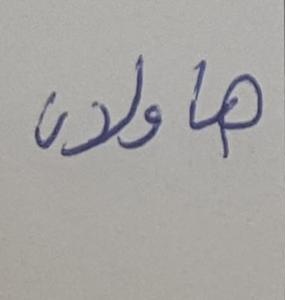 هاولان